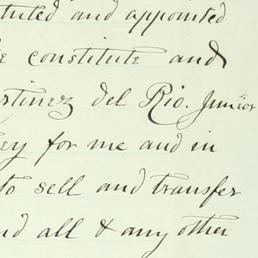 tuted and appointed
e constitute and
rtinez del Rio. Junior
ey for me and in
to sell and transfer
nd all & any other